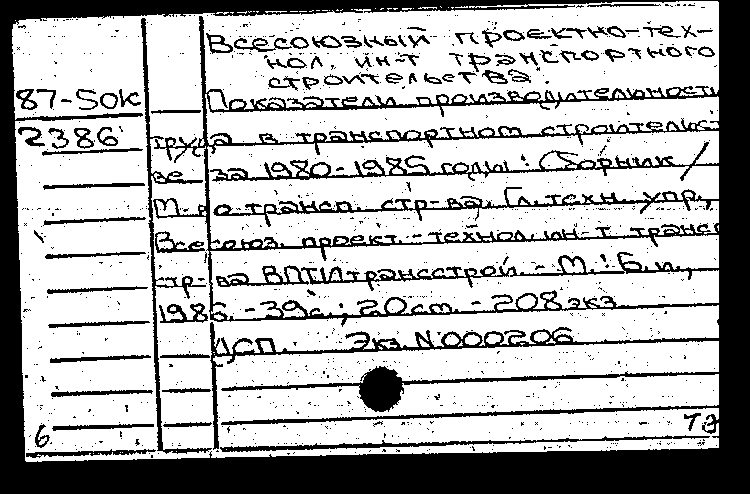 Всесоюзный проектно-тех-
нол. ин-т транспортного
строительства.
87-50к Показатели производительности
2386 труда в транспортном строительст
ве за 1980-1985 годы : Сборник /
М-во трансп. стр-ва. Гл. техн. упр.,
Всесоюз. проект.-технол. ин-т трансп
стр-ва ВПТИтрансстрой. - М. : Б.и.,
1986. - 39с. ; 20 см. - 208 экз.
ДСП. Экз. N 000206
6